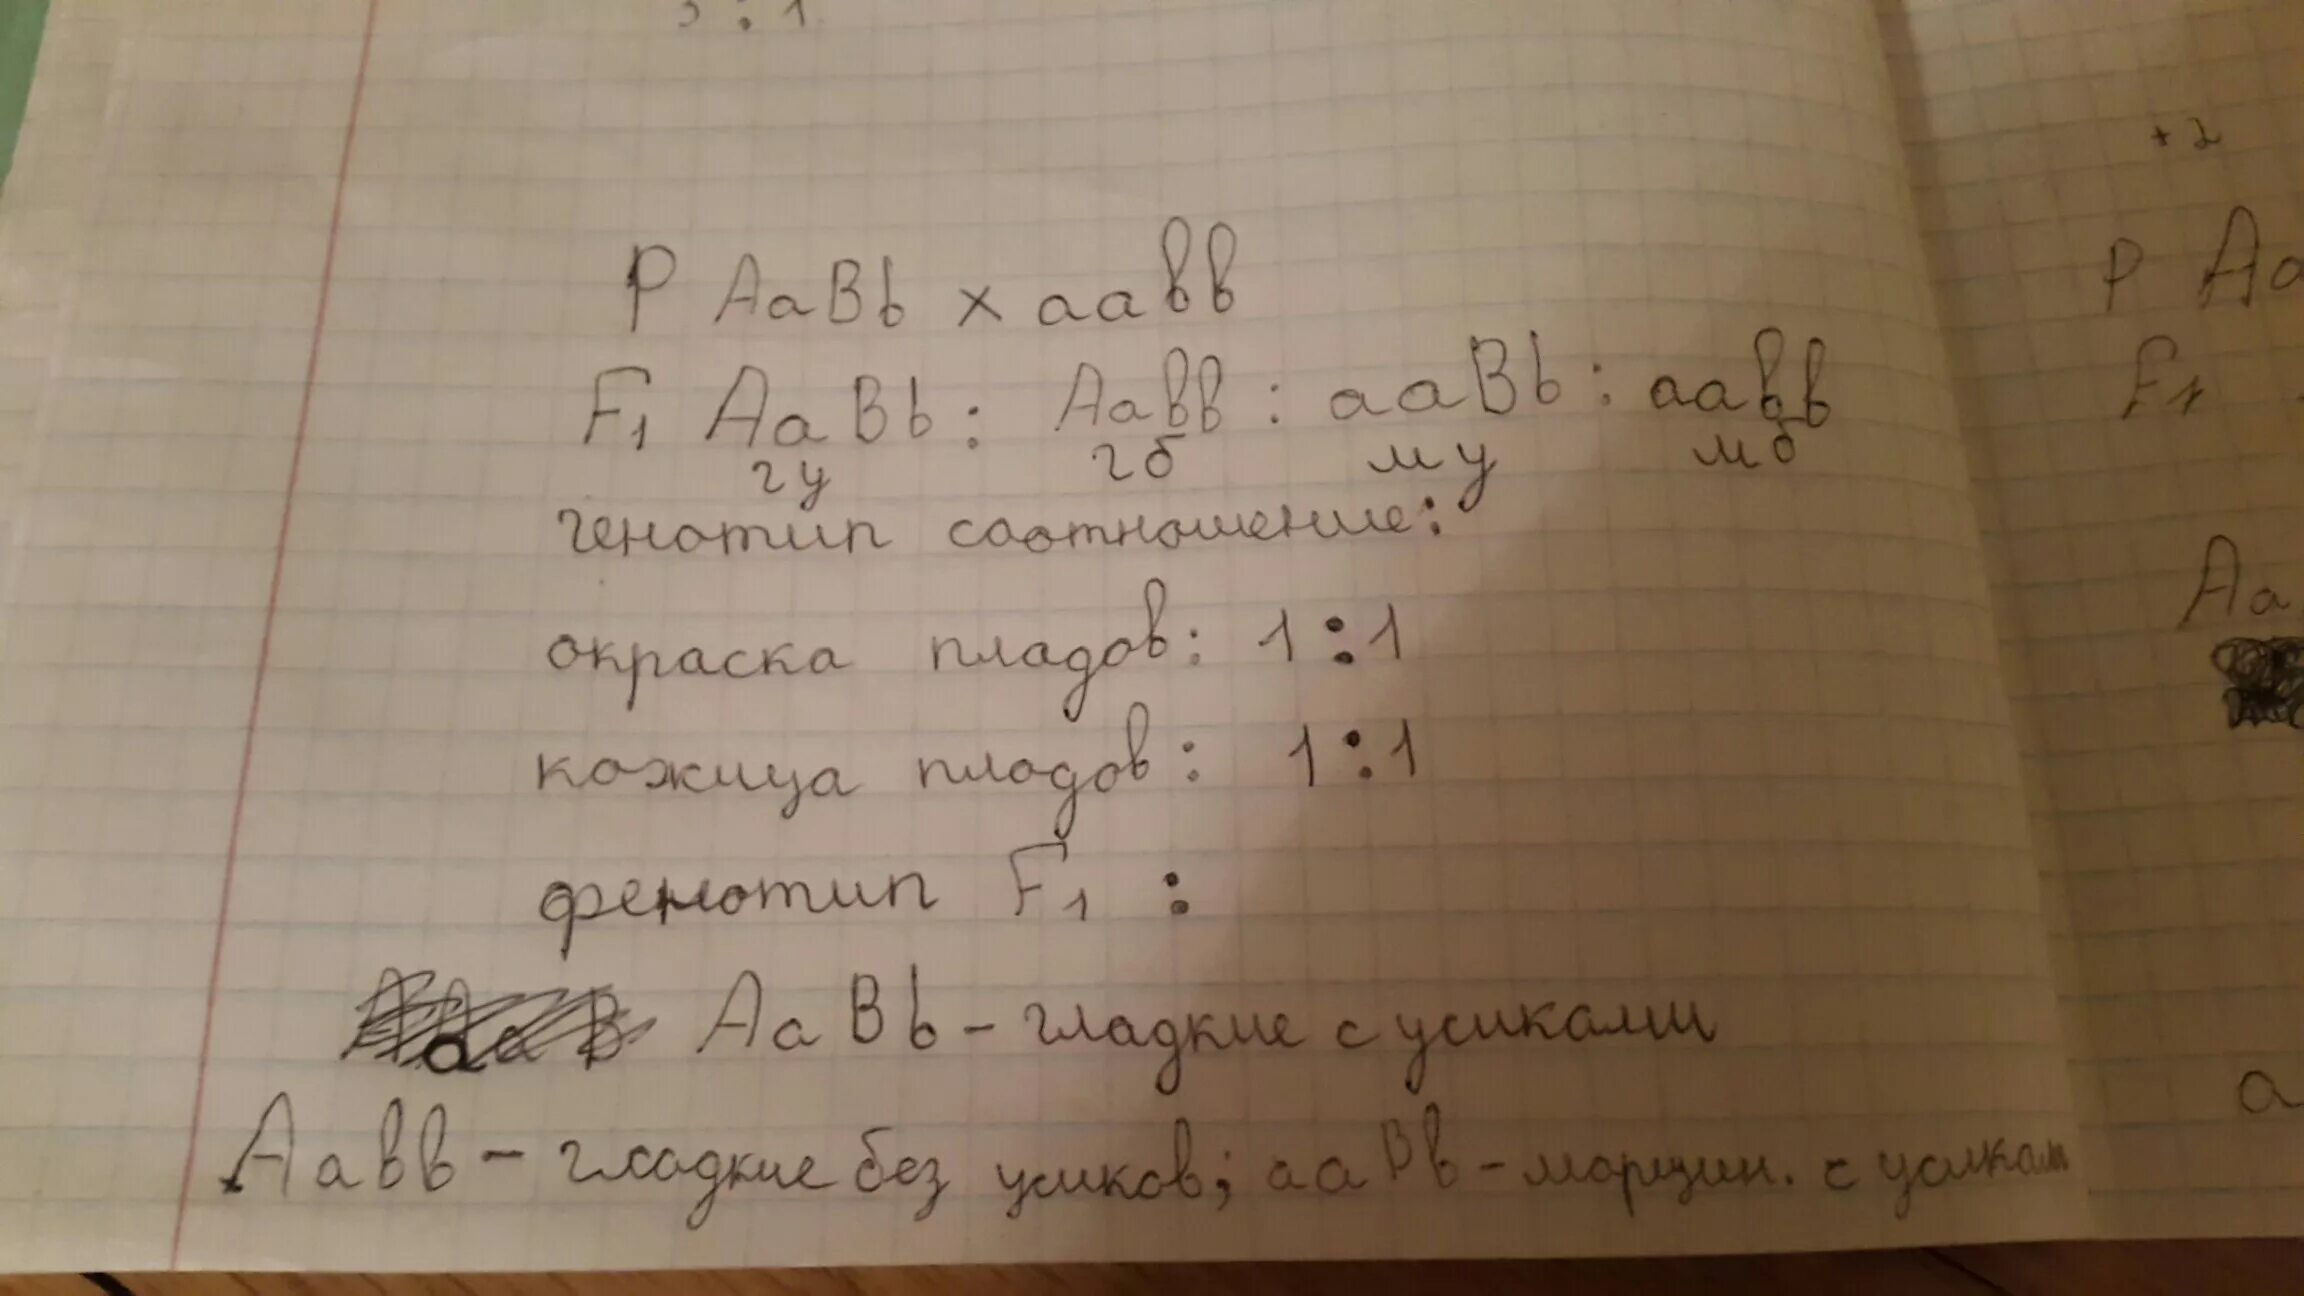 : 1
P AaBb x aaвв
F1 AaBb : Aaвв : aaBb : aaвв
гу гб му мб
генотип соотношение:
окраска плодов: 1:1
кожица плодов: 1:1
фенотип F1 :
AaBb - гладкие с усиками
Aaвв - гладкие без усиков; aaBb - морщин. с усикам
+2
P Aa
F1
Aa
a